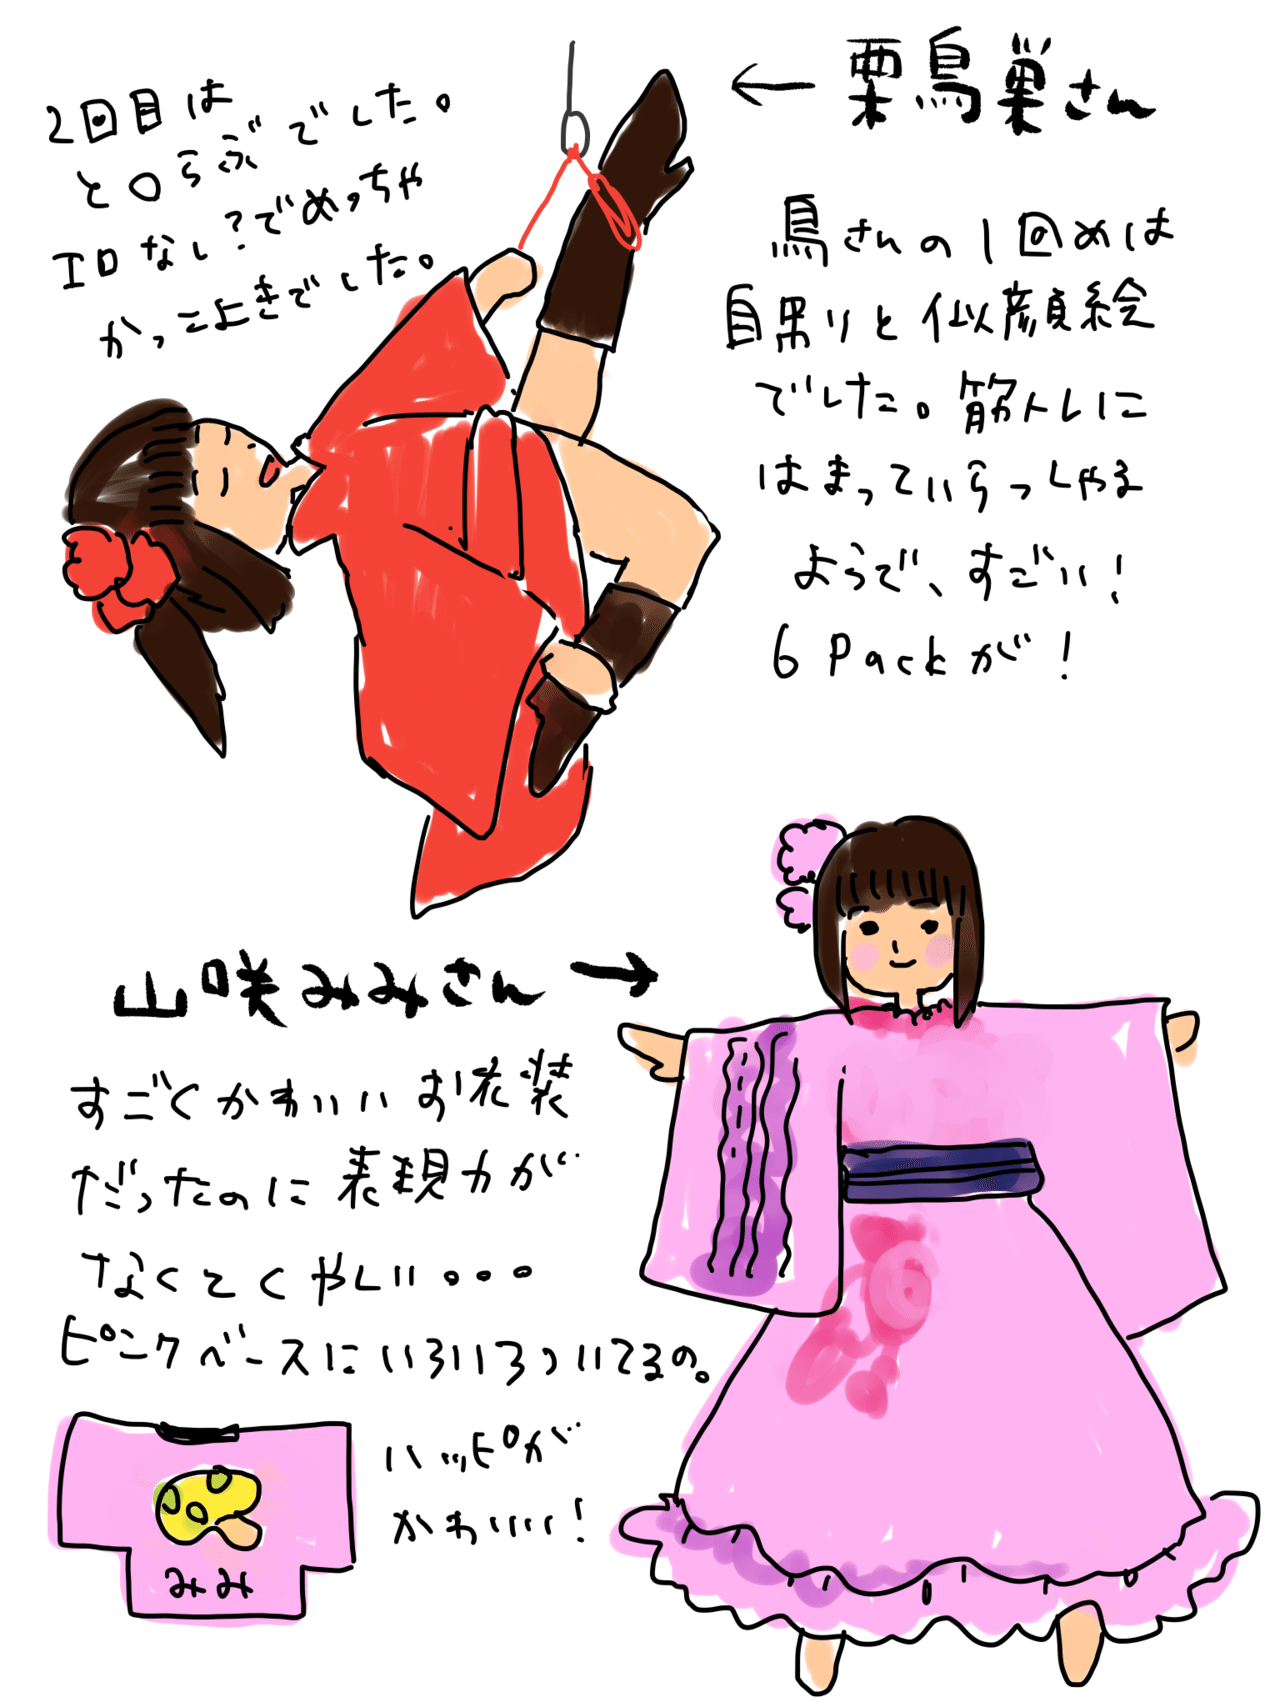 栗鳥巣さん
2回目は
と〇らぶでした。
エロなし?でめっちゃ
かっこよきでした。
鳥さんの1回めは
自吊りと似顔絵
でした。筋トレに
はまっていらっしゃる
ようで、すごい!
6 Packが!
山咲みみさん
すごくかわいいお衣装
だったのに表現力が
なくてくやしい・・・
ピンクベースにいろいろついてるの。
ハッピが
かわいい!
みみ